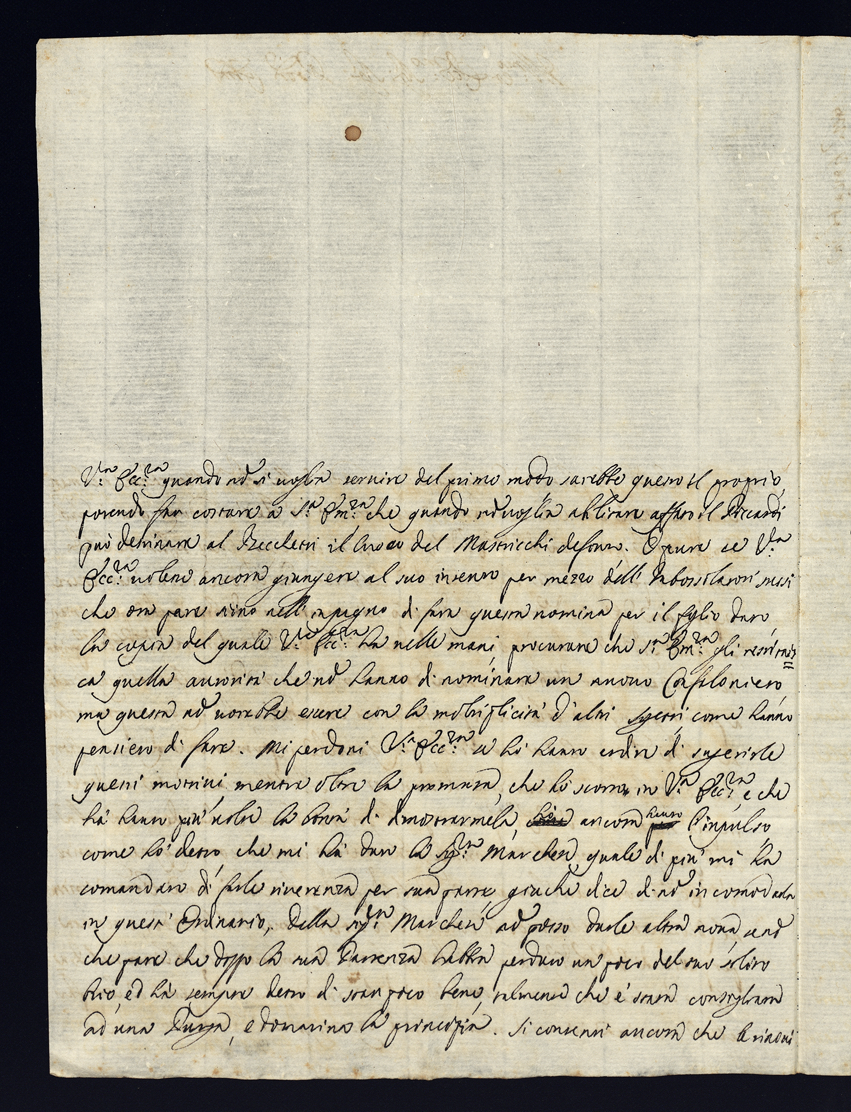 V.ra Ecc.za quando nō si voglia servire del primo modo sarebbe questo il proprio
potendo far costare a S.a Em.za che quando nō voglia abilitare affatto il Riccardi
può destinare al Becchetti il luoco del Mastricchi defonto. Opure se V.ra
Ecc.za volesse ancora giungere al suo intento per mezzo delli Imbossolatori stessi
che ora pare sieno nell'inpegno di fare questa nomina per il foglio dato
la copia del quale V.ra Ecc.za ha nelle mani procurare che S.a Em.za gli restituis=
ca quella autorità che nō hanno di nominare un nuovo Confaloniero
ma questa nō vorebbe essere con la moltiplicità d'altri sogetti come hanno
pensiero di fare. Mi perdoni V.ra Ecc.za se hò hauto ardire di sugerirle
questi motivi mentre oltre la premura, che hò scorta in V.ra Ecc.za e che
hà hauto più volte la bontà di dimostrarmela, ancora hauto l'inpulso
come hò detto che mi hà dato la Sig.ra Marchesa quale di più mi ha
comandato di farle riverenza per sua parte giache dice di nō incomodarla
in questo Ordinario, della Sig.ra Marchesa nō posso darle altra nova senō
che pare che doppo la sua Partenza habbia perduto un poco del suo solito
brio, ed hà sempre detto di star poco bene, talmente che è stata consigliata
ad una Purga, e domatina la principia. Si contenti ancora che le rinovi